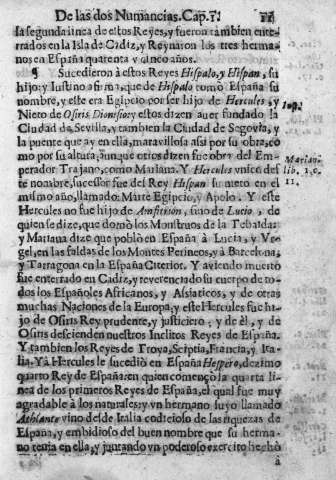 De las dos Numancias. Cap. 1.
la segunda linea de estos Reyes, y fueron tambien ente-
rrados en la Isla de Cadiz, y Reynaron los tres herma-
nos en España quarenta y cinco años.
¶ Sucedieron à estos Reyes Hispalo, y Hispan, su
hijo: y Iustino afirma, que de Hispalo tomo España su
nombre, y este era Egipcio por ser hijo de Hercules, y
Nieto de Osiris Dionisio: y estos dizen auer fundado la
Ciudad de Sevilla, y tambien la Ciudad de Segovia, y
la puente que ay en ella, maravillosa assi por su obra, co
mo por su altura, aunque otros dizen fue obra del Em-
perador Trajano, como Mariana. Y Hercules vnico des
te nombre, sucessor fue del Rey Hispan su nieto en el
mismo año, llamado: Marte Egipcio, y Apolo. Y este
Hercules no fue hijo de Amfitrion, sino de Lucio, de
quien se dize, que domò los Monstruos de la Tebaida:
y Mariana dize que poblò en España à Lucia, y Vr-
gel, en las faldas de los Montes Perineos, y à Barcelona,
y Tarragona en la España Citerior. Y aviendo muerto
fue enterrado en Cadiz, y reverenciado su cuerpo de to-
dos los Españoles Africanos, y Asiaticos, y de otras
muchas Naciones de la Europa, y este Hercules fue hi-
jo de Osiris Rey prudente, y justiciero, y de èl, y de
Osiris descienden nuestros Inclitos Reyes de España.
Y tambien los Reyes de Troya, Sciptia, Francia, y Ita-
lia. Y à Hercules le sucediò en España Hespero, dezimo
quarto Rey de España: en quien començò la quarta li
nea de los primeros Reyes de España, el qual fue muy
agradable à los naturales: y vn hermano suyo llamado
Athlante vino desde Italia codicioso de las riquezas de
España, y embidioso del buen nombre que su herma-
no tenia en ella, y juntando vn poderoso exercito hechò
à
Mariano.
lib. 1. c.
11.